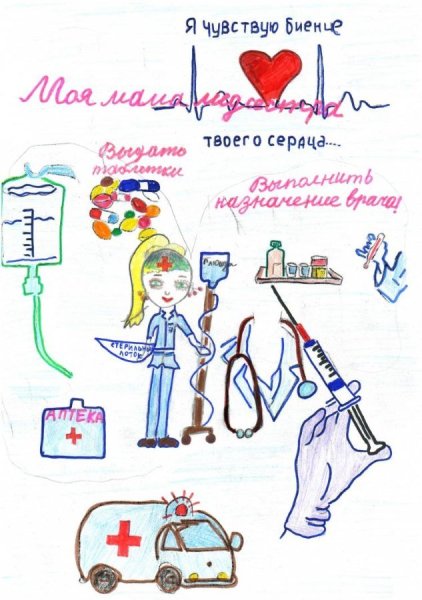 Я чувствую биение
Моя мама медсестра
твоего сердца....
Выдать
таблетки
Выполнить
назначение врача!
СТЕРИЛЬНЫЙ
ЛОТОК
АПТЕКА